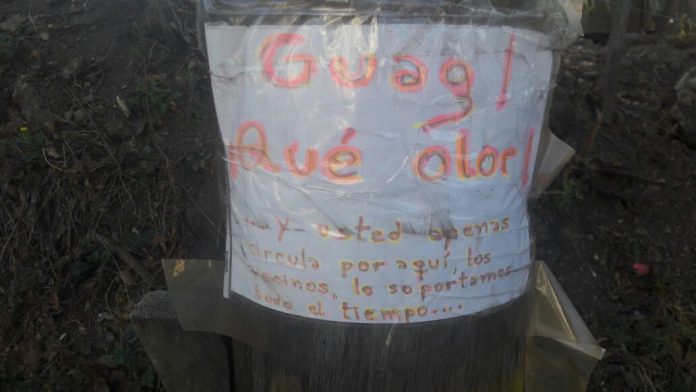 Guag!
¡Qué olor!
... y usted apenas
circula por aquí, los
vecinos, lo soportamos
todo el tiempo....